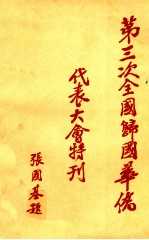 第三次全國歸國華僑
代表大會特刊
張國基題